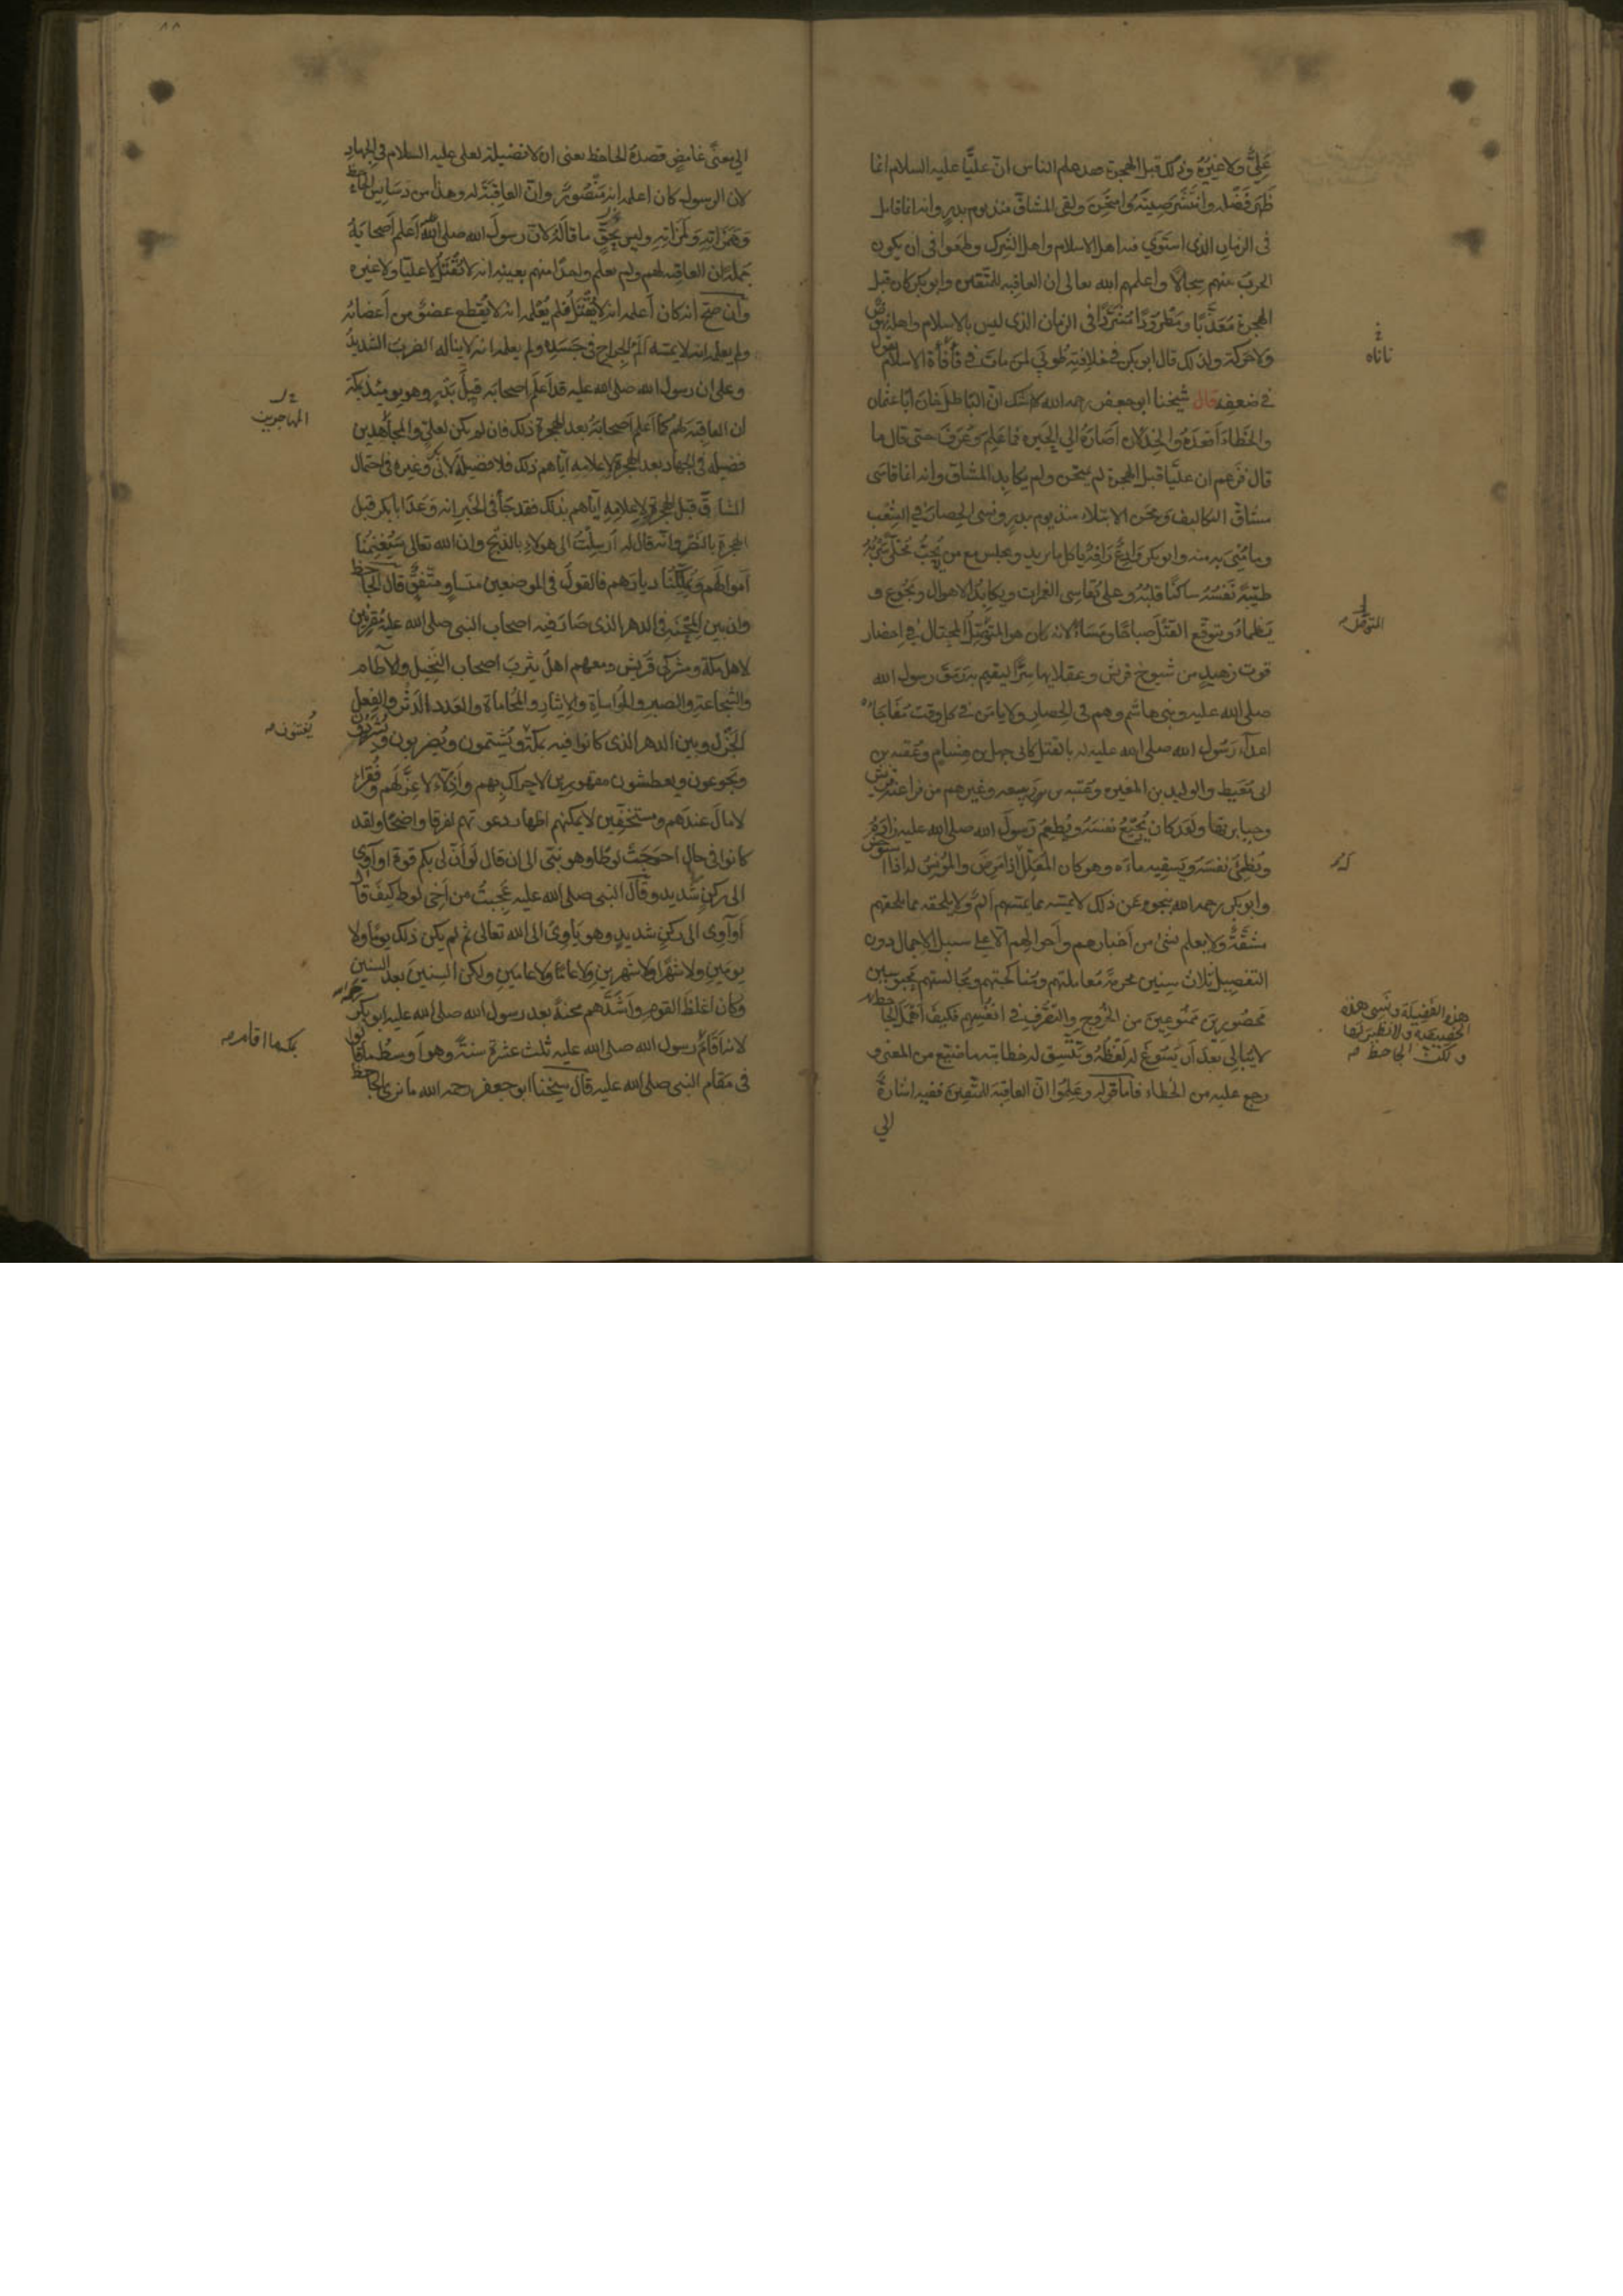 عَلِيٌّ ولا غيرُهُ وذلك قبل الهجرة فقد علم الناس انّ عليًّا عليه السلام انما
ظَهَرَ فَضْلُه وانتَشَرَ صِيتُهُ وامتُحِنَ ولقى المشاقّ منذ يوم بدرٍ وانه انما قاتل
فى الزمانِ الذى استَوَي فيه اهل الاسلام واهل الشرك وطمعوا فى ان يكون
الحربَ بينهم سِجالًا واعلمهم الله تعالى ان العاقبة للمتقين وابو بكر كان قبل
الهجرة مُعَذَّبًا ومَطرُودًا مُشَرَّدًا فى الزمان الذى ليس بالاسلام واهله نهوض
ولا حركة ولذلك قال ابو بكر في خلافتِهِ طُوبَي لمن مات في فَأفأة الاسلام يقول
في ضعفه قال شيخنا ابو جعفر رحمه الله لا شك انّ الباطل خانَ ابا عثمان
والخَطَاءَ اَقعَدَهُ والخِذلانَ اَصَارَهُ الي الحَيرة فما عَلِمَ وَعَرَفَ حتى قال ما
قال فزعم ان عليًّا قبل الهجرة لم يمتحن ولم يكابد المشاق وانه انما قاسَى
مشاقّ التكاليف ومِحَن الابتلاء منذ يوم بدرٍ ونسى الحِصارَ في الشِّعْب
وما مُنِيَ به منه وابو بكر وَادِعٌ رَافِهٌ ياكل ما يريد ويجلس مع من يُحِبُّ مُخَلًّى سَرْبُهُ
طيّبةً نَفسُهُ ساكنًا قلبُهُ وعلىٌّ يُقاسِى الغمرات ويكابدُ الاهوال ويَجُوع و
يَظماءُ ويتوقّع القَتْلَ صباحًا ومَسَاءً لانه كان هو المُتَوَصِّلُ المُحتالُ في احضار
قوت زهيدٍ من شيوخ قريش وعقلايها سِرًّا ليقيم به رَمَقَ رسول الله
صلى الله عليه وبنى هاشم وهم فى الحِصار ولا يامَن في كل وقت مُفَاجَاةَ
اعدآء رَسُول الله صلى الله عليه له بالقتل كابى جهل بن هشامٍ وعُقبه بن
ابى مُعَيط والوليد بن المغيره وعُتبه بن ربيعه وغيرهم من فراعنة قريش
وجبابرتها ولقد كان يُجيعُ نفسَهُ ويُطعِمُ رَسُولَ الله صلى الله عليه زادَهُ
ويُظمِئُ نفسَهُ ويَسقِيه ماءَه وهو كان المُعَلِّلَ اذا مَرِضَ والمُونِسَ له اذا استوحش
وابو بكر رحمه الله بنجوه عن ذلك لا يَمَسّه مما يمسّهم اَلمٌ ولا يلحقه مما يلحقهم
مَشَقَّةٌ ولا يعلم بشئ من اَخبارهم واَحوالهم الا علي سبيل الاجمال دون
التفصيل ثلاث سِنينَ محرمةً مُعاملتهم ومُناكحتهم ومُجالستهم محبوسين
محصُورينَ مَمنُوعِينَ من الخُروج والتصَرُّفِ فى انفُسِهِم فكيفَ اَهمَلَ الجاحظ
لا يُبالِى بعدَ اَن يَسُوغَ له لَفظُهُ ويَتَّسِق له خطابته ما ضَيّع من المعنى و
رجع عليه من الخَطاء فاَما قوله وعَلِمُوا انّ العاقِبَة للمتَّقِينَ ففيه اشارةٌ
الي
نأنأه
المتوصِّل
له
هذه الفضيلة ونَسِىَ هذه
الخصيصة ولا نظير لها
ولكن الجاحظ
٨٨
الي معنًى غامضٍ قصدَهُ الجاحظ يعنى ان لا فضيلة لعلى عليه السلام فى الجهادِ
لان الرسول كان اعلمه انه مَنصُورٌ وانّ العاقِبَةَ له وهذا من دَسَايِسِ الجاحظ
وَهَمَزاتِهِ ولَمَزاتِهِ وليس بحقٍّ ما قالَهُ لانّ رسولَ الله صلى الله عليه اَعلَم اَصحابَهُ
جملةً ان العاقبه لهم ولم يعلم واحدًا منهم بعينِهِ انه لا يُقتَلُ لا عليّا ولا غيره
واِن صحّ انه كان اَعلمه انه لا يُقْتَلُ فلم يُعْلمه انه لا يُقطَع عضوٌ من اَعضائه
ولم يعلمه انه لا يمسّه اَلَمُ الجِراح فى جَسَدِه ولم يعلمه انه لا يناله الضربُ الشديدُ
وعلى ان رسول الله صلى الله عليه قد اَعلَم اصحابَه قبل بَدْرٍ وهو يومئذ بمكة
ان العاقبَة لهم كما اَعلم اَصحابَهُ بعد الهجرة ذلك فان لم يكن لعليٍّ والمجاهدين
فضيلة فى الجهاد بعد الهجرة لاعلامِه ايّاهم ذلك فلا فضيلة لابى بكر وغيره فى احتمال
المشاقّ قبل الهجرة لاعلامِهِ ايّاهم بذلك فقد جآءَ فى الخبر انه وَعَدَ ابا بكر قبل
الهجرة بالنَّصْرِ وانّه قال له اُرسِلْتُ الى هولاء بالذَّبْحِ وان الله تعالى سَيُغْنِمُنَا
اموالَهُم ويُمَلِّكُنَا ديارَهم فالقولُ فى الموضعين متساوٍ ومتّفقٌ قال الجاحظ
وان بين المِحنَه فى الدهر الذى صَارَ فيه اصحاب النبى صلى الله عليه مُقرِنين
لاهل مكة ومشركى قريش ومعهم اهل يثربَ اصحاب النخيل والآطام
والشجاعة والصبر والمُواساةِ والايثارِ والمُحاماة والعَدد الدَّثْرِ والفِعلِ
الجَزْل وبين الدهر الذى كانوا فيه بمكّة ويُشتَمون ويُضربون ويُشرّدون
ويَجوعون ويَعطشون مقهورين لا حِراك بِهِم واَذِلّاءَ لا عِزَّ لَهُم وفُقراء
لا مالَ عندهم ومستخفِين لا يمكنهم اظهار دعوتهم لفرقا واضحًا ولقد
كانوا فى حالٍ احوَجَتْ لوطًا وهو نبىّ الى ان قال لَو اَنّ لى بكم قوةً او آوى
الى ركنٍ شديد وقال النبى صلى الله عليه عَجِبتُ من اَخِى لوط كيفَ قال
اَو آوِى الى ركنٍ شديدٍ وهو يَاوِىْ الى الله تعالى ثم لم يكن ذلك يومًا ولا
يومَينِ ولا شهرًا ولا شهرينِ ولا عامًا ولا عامَينِ ولكن السنينَ بعد السنين
وكان اَغلظ القوم واَشدّهم محنةً بعد رسول الله صلى الله عليه ابو بكر رحمه الله
لانه اَقَامَ رسول الله صلى الله عليه ثلث عشرة سنةً وهو اَوسَطُ ما قالوا
فى مقام النبى صلى الله عليه قال شيخنا ابو جعفر رحمه الله ما نرى الجاحظ
المهاجرين
يُفتنون
بمكة ما اقام